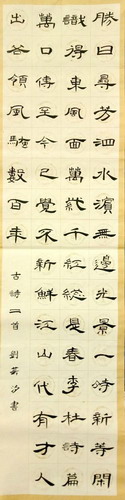 勝日尋芳泗水濱無邊光景一時新等閑
識得東風面萬紫千紅總是春李杜詩篇
萬口傳至今已覺不新鮮江山代有才人
出各領風騷數百年
古詩二首 劉英書